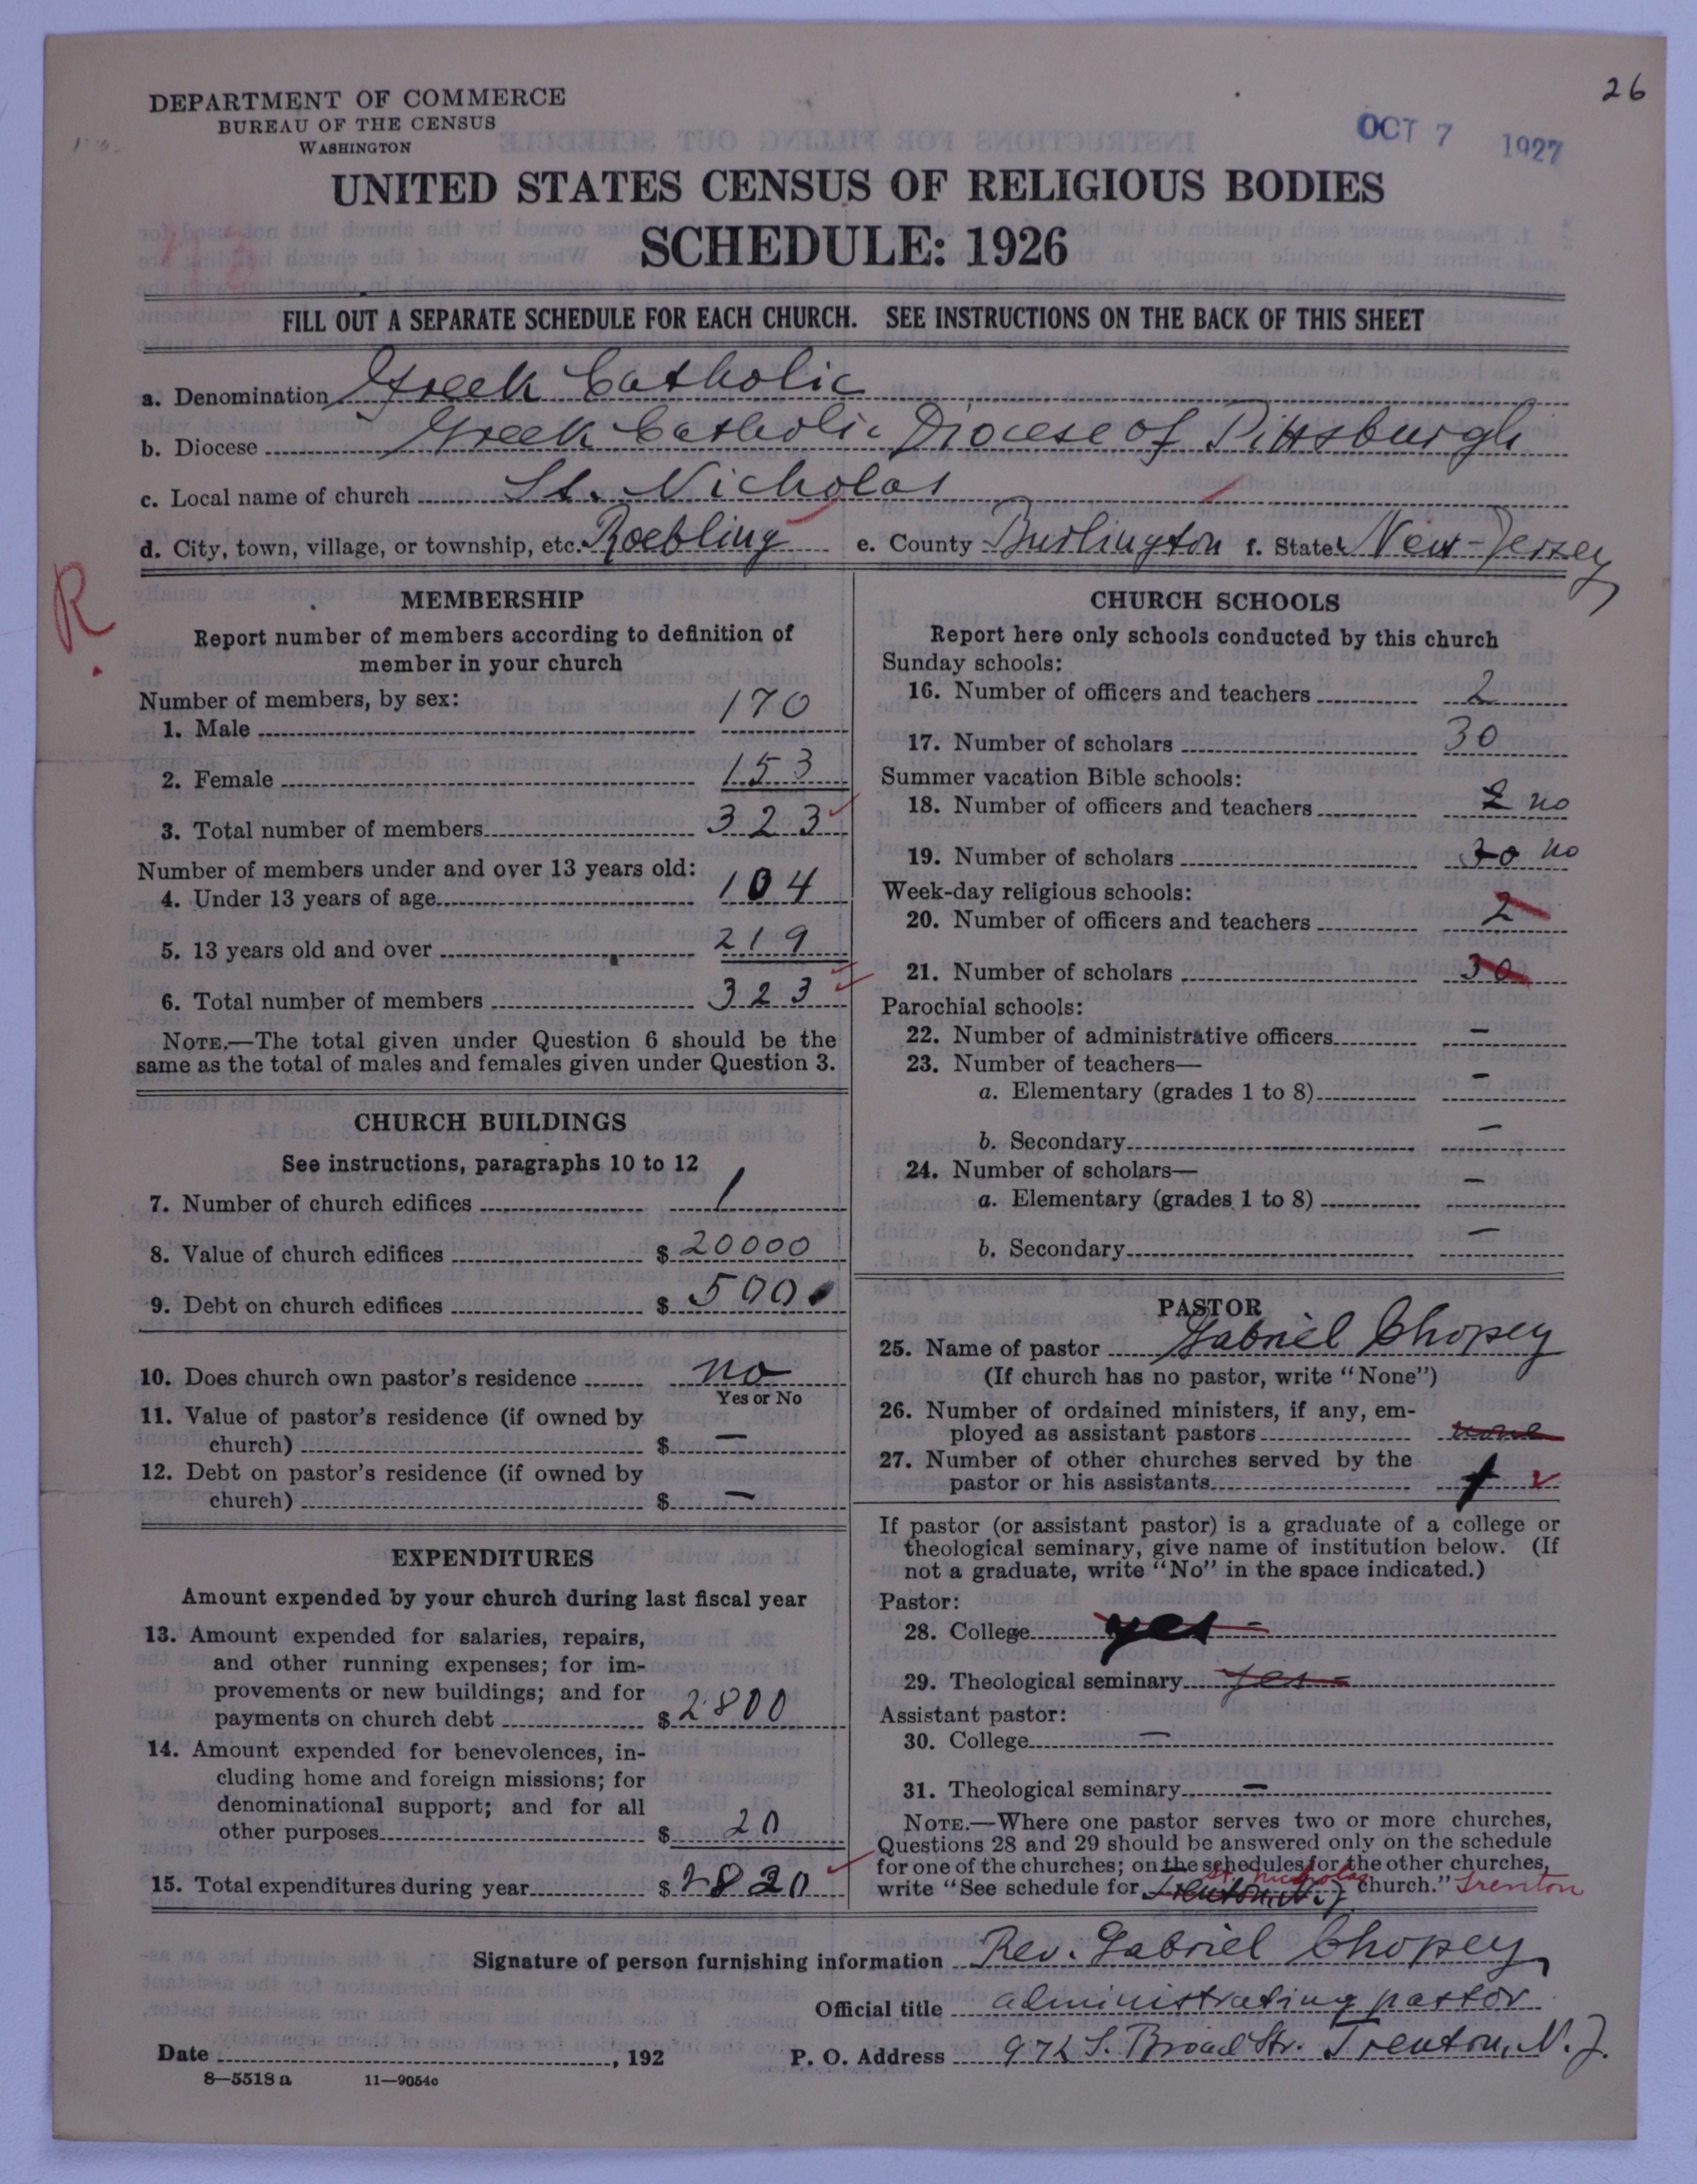 26
DEPARTMENT OF COMMERCE
BUREAU OF THE CENSUS
WASHINGTON
OCT 7 1927
UNITED STATES CENSUS OF RELIGIOUS BODIES
SCHEDULE: 1926
FILL OUT A SEPARATE SCHEDULE FOR EACH CHURCH. SEE INSTRUCTIONS ON THE BACK OF THIS SHEET
a. Denomination Greek Catholic
b. Diocese Greek Catholic Diocese of Pittsburgh
c. Local name of church St. Nicholas
d. City, town, village, or township, etc. Roebling e. County Burlington f. State New-Jersey
R.
MEMBERSHIP
Report number of members according to definition of
member in your church
Number of members, by sex:
1. Male 170
2. Female 153
3. Total number of members 323
Number of members under and over 13 years old:
4. Under 13 years of age 104
5. 13 years old and over 219
6. Total number of members 323
NOTE.—The total given under Question 6 should be the
same as the total of males and females given under Question 3.
CHURCH BUILDINGS
See instructions, paragraphs 10 to 12
7. Number of church edifices 1
8. Value of church edifices $ 20000
9. Debt on church edifices $ 500
10. Does church own pastor's residence no
Yes or No
11. Value of pastor's residence (if owned by
church) $ —
12. Debt on pastor's residence (if owned by
church) $ —
EXPENDITURES
Amount expended by your church during last fiscal year
13. Amount expended for salaries, repairs,
and other running expenses; for im-
provements or new buildings; and for
payments on church debt $ 2800
14. Amount expended for benevolences, in-
cluding home and foreign missions; for
denominational support; and for all
other purposes $ 20
15. Total expenditures during year $ 2820
CHURCH SCHOOLS
Report here only schools conducted by this church
Sunday schools:
16. Number of officers and teachers 2
17. Number of scholars 30
Summer vacation Bible schools:
18. Number of officers and teachers 2 no
19. Number of scholars 30 no
Week-day religious schools:
20. Number of officers and teachers 2
21. Number of scholars 30
Parochial schools:
22. Number of administrative officers —
23. Number of teachers—
a. Elementary (grades 1 to 8) —
b. Secondary —
24. Number of scholars—
a. Elementary (grades 1 to 8) —
b. Secondary —
PASTOR
25. Name of pastor Gabriel Chopey
(If church has no pastor, write "None")
26. Number of ordained ministers, if any, em-
ployed as assistant pastors none
27. Number of other churches served by the
pastor or his assistants 1
If pastor (or assistant pastor) is a graduate of a college or
theological seminary, give name of institution below. (If
not a graduate, write "No" in the space indicated.)
Pastor:
28. College yes -
29. Theological seminary yes -
Assistant pastor:
30. College —
31. Theological seminary —
NOTE.—Where one pastor serves two or more churches,
Questions 28 and 29 should be answered only on the schedule
for one of the churches; on the schedules for the other churches,
write "See schedule for Trenton, N.J. St. Nicholas church." Trenton
Signature of person furnishing information Rev. Gabriel Chopey
Official title administrating pastor
Date , 192 P. O. Address 972 S. Broad Str. Trenton, N.J.
8—5518 a 11—9054c